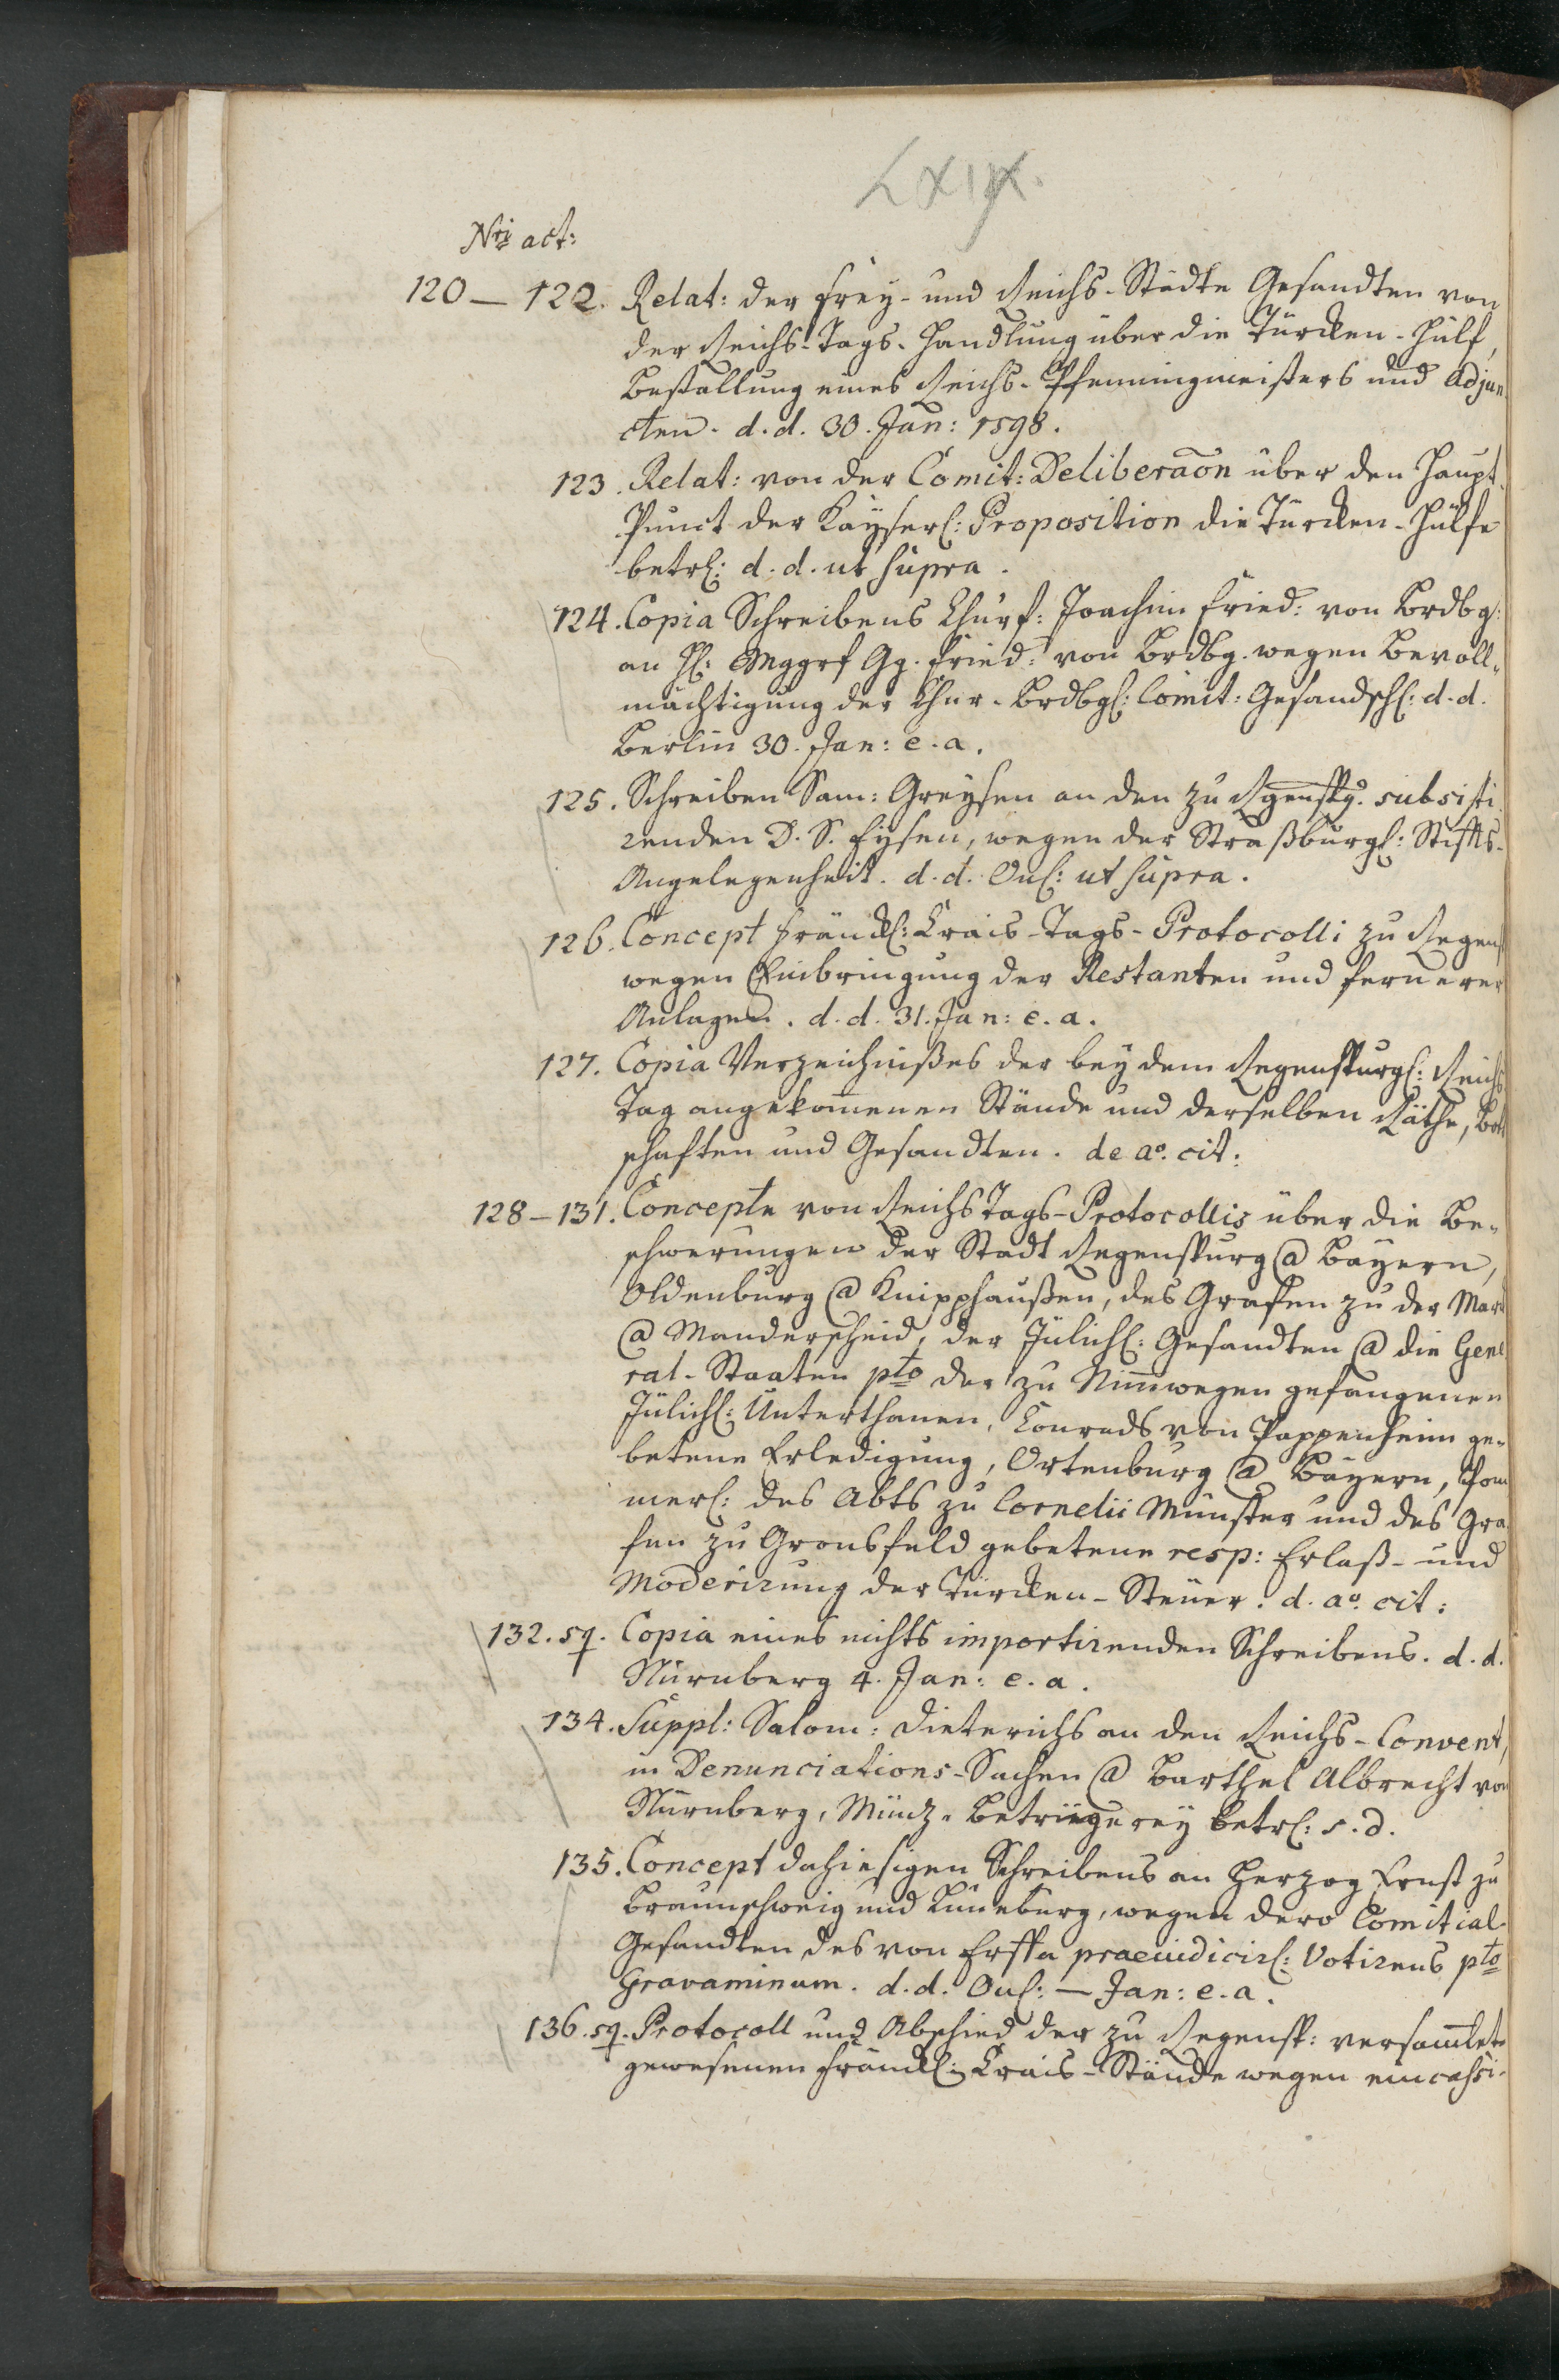 LXIX.
Nri act:
120 – 122. Relat: der Frey- und Reichs-Städte Gesandten von
der Reichs-Tags-Handlung über die Türcken-Hülf,
Bestallung eines Reichs-Pfenningmeisters und Adjun
cten. d. d. 30. Jan: 1598.
123. Relat: von der Comit: Deliberaõn über den Haupt
Punct der Kayserl: Proposition die Türcken-Hülfe
betrl: d. d. ut supra.
124. Copia Schreibens Churf: Joachim Fried: von Brdbg:
an H: Mggrf Gg. Fried: von Brdbg. wegen Bevoll-
mächtigung der Chur-Brdbgl: Comit: Gesandschl: d. d.
Berlin 30. Jan: e. a.
125. Schreiben Sam: Greysen an den zu Rgenspg. subsisti
renden D. S. Eysen, wegen der Straßburgl: Stiffts-
Angelegenheit. d. d. Onl: ut supra.
126. Concept Fränckl: Crais-Tags-Protocolli zu Regensp
wegen Einbringung der Restanten und fernerer
Anlagen. d. d. 31. Jan: e. a.
127. Copia Verzeichnißes der bey dem Regenspurgl: Reichs
Tag angekommenen Stände und derselben Räthe, Bott
schafften und Gesandten. de ao. cit:
128 – 131. Concepte von ReichsTags-Protocollis über die Be-
schwerungen der Stadt Regenspurg @ Bayern,
Oldenburg @ Knipphaußen, des Grafen zu der Marck
@ Manderscheid, der Jülichl: Gesandten @ die Gene
ral-Staaten pto der zu Nimwegen gefangenen
Jülichl: Unterthanen, Conrads von Pappenheim ge-
betene Erledigung, Ortenburg @ Bayern, Pom
merl: des Abts zu Cornelii Münster und des Gra
fen zu Gronsfeld gebetene resp: Erlaß- und
Moderirung der Türcken-Steuer. d. ao. cit:
132. sq. Copia eines nichts importirenden Schreibens. d. d.
Nürnberg 4. Jan: e. a.
134. Suppl: Salom: Dieterichs an den Reichs-Convent,
in Denunciations-Sachen @ Barthel Albrecht von
Nürnberg, Münz-Betrügerey betrl: s. d.
135. Concept dahiesigen Schreibens an Herzog Ernst zu
Braunschweig und Lüneburg, wegen dero Comitial
Gesandten des von Erffa praeiudicirl: Votirens pto
Gravaminum. d. d. Onl: — Jan: e. a.
136. sq. Protocoll und Abschied der zu Regensp: versamlet
gewesenen Fränckl: Crais-Stände wegen eincassi-